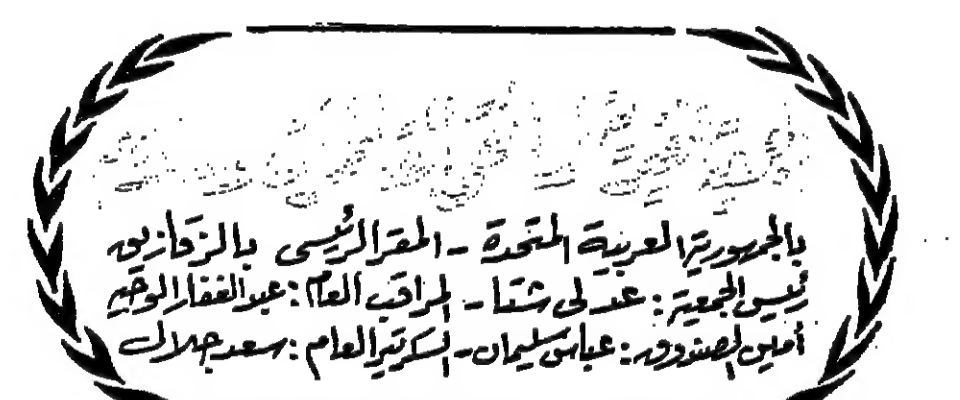 بالجمهورية العربية المتحدة - المقر الرئيسى بالزقازيق
رئيس الجمعية : عدلى شتا - المراقب العام : عبد الغفار الوحيد
أمين الصندوق : عباس سليمان - السكرتير العام : سعد جلال